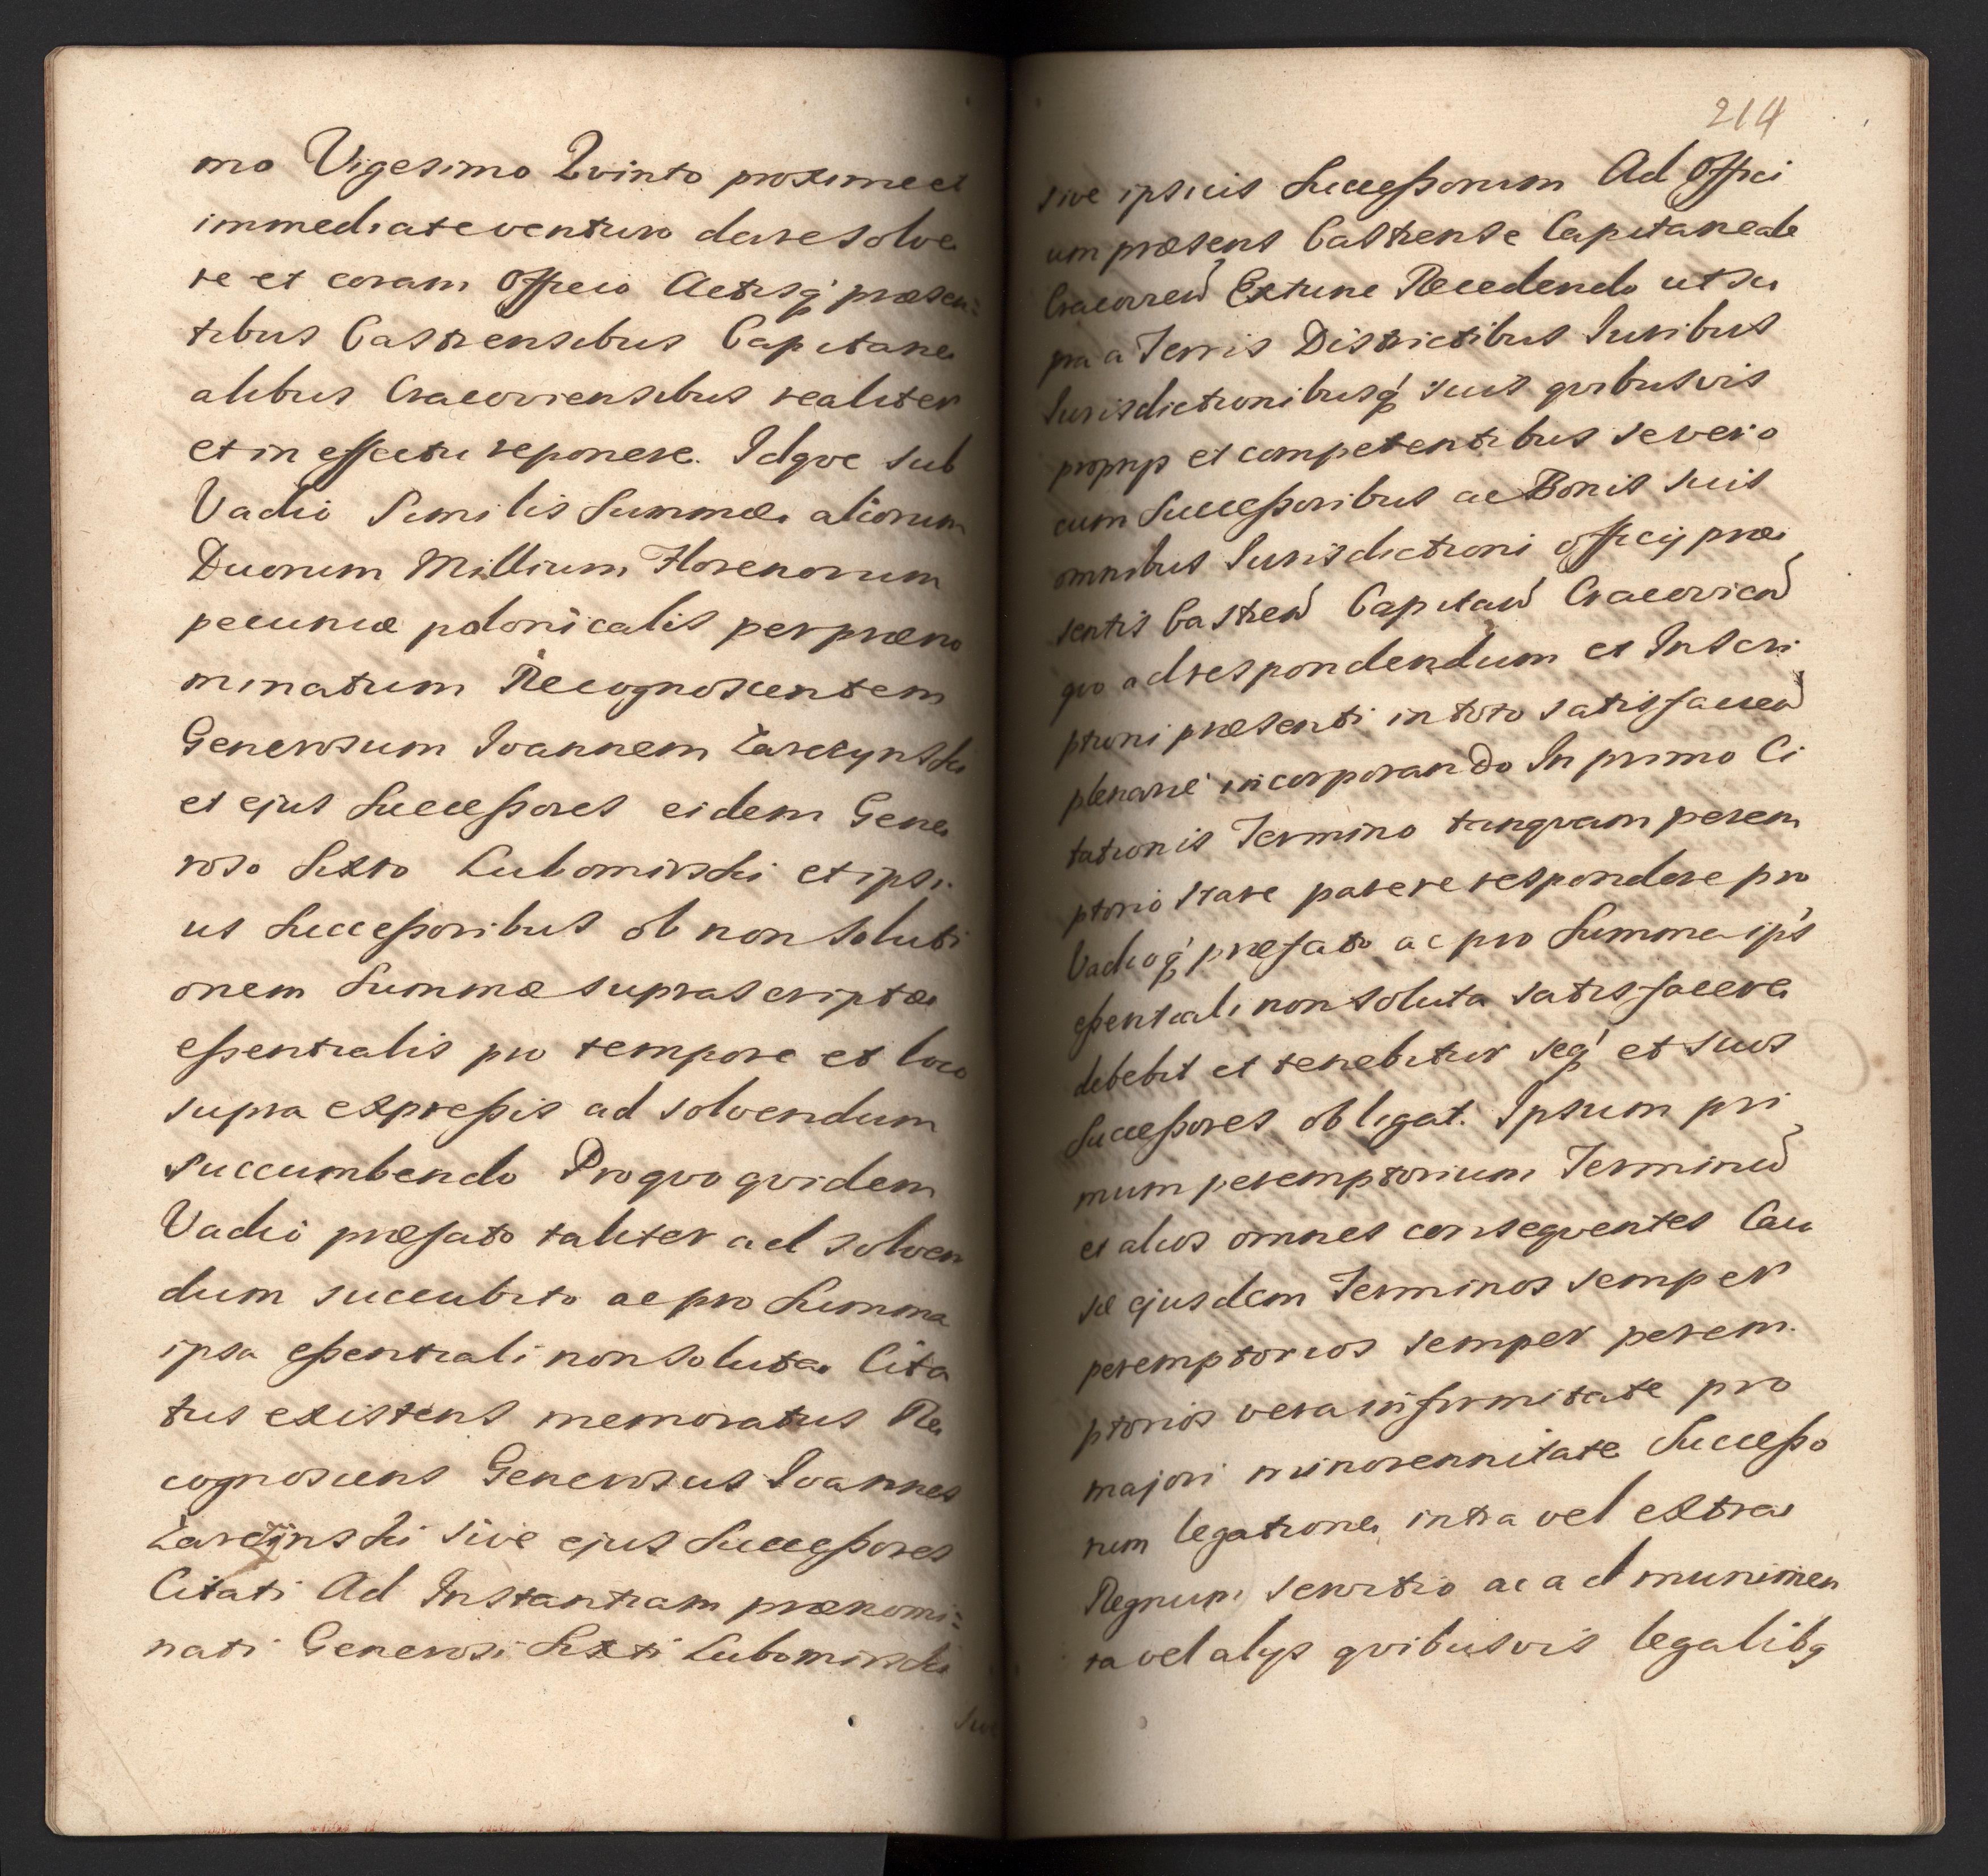 mo Vigesimo Qvinto proxime et
immediate venturo dare solve
re et coram Officio Actisq' præsen=
tibus Castrensibus Capitane
alibus Cracoviensibus realiter
et in effectu reponere. Idqve sub
Vadio Similis Summæ aliorum
Duorum Millium Florenorum
pecuniæ polonicalis per præno
minatum Recognoscentem
Generosum Ioannem Zarczynski
et ejus Successores eidem Gene
roso Sixto Lubomirski et ipsi
us Successoribus ob non soluti
onem Summæ suprascriptæ
essentialis pro tempore et loco
supra expressis ad solvendum
succumbendo Pro qvo qvidem
Vadio præfato taliter ad solven
dum succubito ac pro Summa
ipsa essentiali non soluta Cita
tus existens memoratus Re
cognoscens Generosus Ioannes
Zarczynski sive ejus Successores
Citati Ad Instantiam prænomi=
nati Generosi Sixti Lubomirski
sive
214
sive ipsius Successorum Ad Offici
um præsens Castrense Capitaneale
Cracovien Extunc Recedendo ut su
pra a Terris Districtibus Iuribus
Iurisdictionibusq' suis qvibusvis
proprys et competentibus se vero
cum Successoribus ac Bonis suis
omnibus Iurisdictioni officij præ
sentis Castren Capitan Cracovien
qvo ad respondendum et Inscri
ptioni præsenti in toto satisfacien
plenarie incorporando In primo Ci
tationis Termino tanqvam perem
ptorio stare parere respondere pro
Vadioq' præfato ac pro Summa ips
essentiali non soluta satisfacere
debebit et tenebitur seq' et suos
Successores obligat. Ipsum pri
mum peremptorium Terminu
et alios omnes conseqventes Cau
sæ ejusdem Terminos semper
peremptorios semper perem
ptorios vera infirmitate pro
majori minorennitate Successo
rum legatione intra vel extra
Regnum servitio ac ad munimen
ta vel alys qvibusvis legalibq